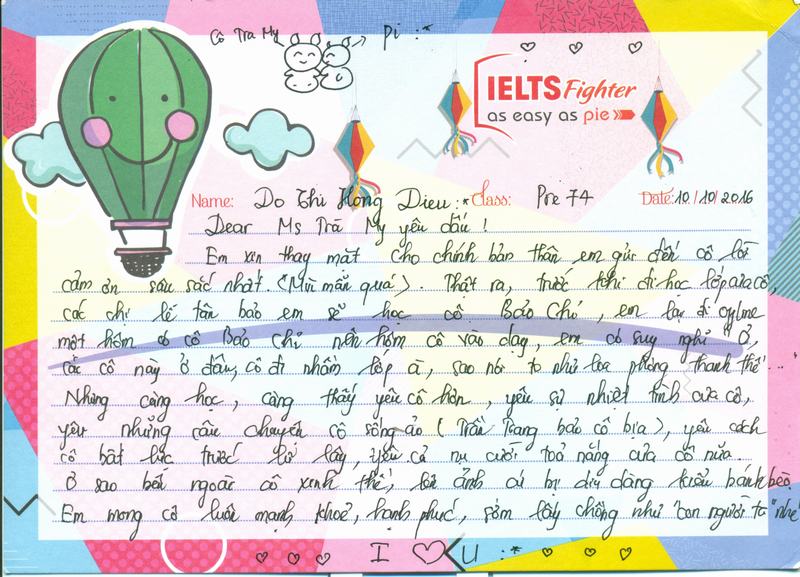 Cô Trà My pi :*
IELTS Fighter
as easy as pie
Name: Do Thi Hong Dieu :* Class: Pre 74 Date: 10/10/2016
Dear Ms Trà My yêu dấu !
Em xin thay mặt cho chính bản thân em gửi đến cô lời
cảm ơn sâu sắc nhất. (Mùi mẫn quá). Thật ra, trước khi đi học lớp của cô,
các chị lễ tân bảo em sẽ học cô Bảo Chi, em lại đi offline
một hôm có cô Bảo Chi nên hôm cô vào dạy, em có suy nghĩ "Ơ,
cái cô này ở đâu, cô đi nhầm lớp à, sao nói to như loa phóng thanh thế"...
Nhưng càng học, càng thấy yêu cô hơn, yêu sự nhiệt tình của cô,
yêu những câu chuyện cô sống ảo (Trần Trang bảo cô bịa), yêu cách
cô bất lực trước lầy, yêu cả nụ cười toả nắng của cô nữa.
Ở sao bên ngoài cô xinh thế, ảnh cứ bị dịu dàng kiểu bánh bèo.
Em mong cô luôn mạnh khoẻ, hạnh phúc, sớm lấy chồng như "con người ta" nhé
I U :*